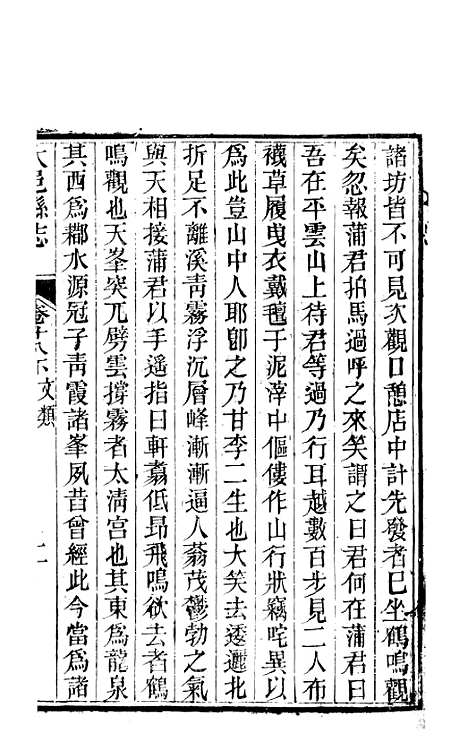 諸坊皆不可見次觀口憩店中計先發者已坐鶴鳴觀
矣忽報蒲君拍馬過呼之來笑謂之曰君何在蒲君曰
吾在平雲山上待君等過乃行耳越數百步見二人布
襪草履曳衣戴氊子泥滓中傴僂作山行狀竊咤異以
為此豈山中人耶卽之乃甘李二生也大笑去逶邐北
折足不離溪靑霧浮沉層峰漸漸逼人蓊茂鬱勃之氣
與天相接蒲君以手遙指曰軒翥低昂飛鳴欲去者鶴
鳴觀也天峯突兀劈雲撐霧者太淸宮也其東為龍泉
其西為鄰水源冠子靑霞諸峯夙昔曾經此今當為諸
大邑縣志 卷十八下文類